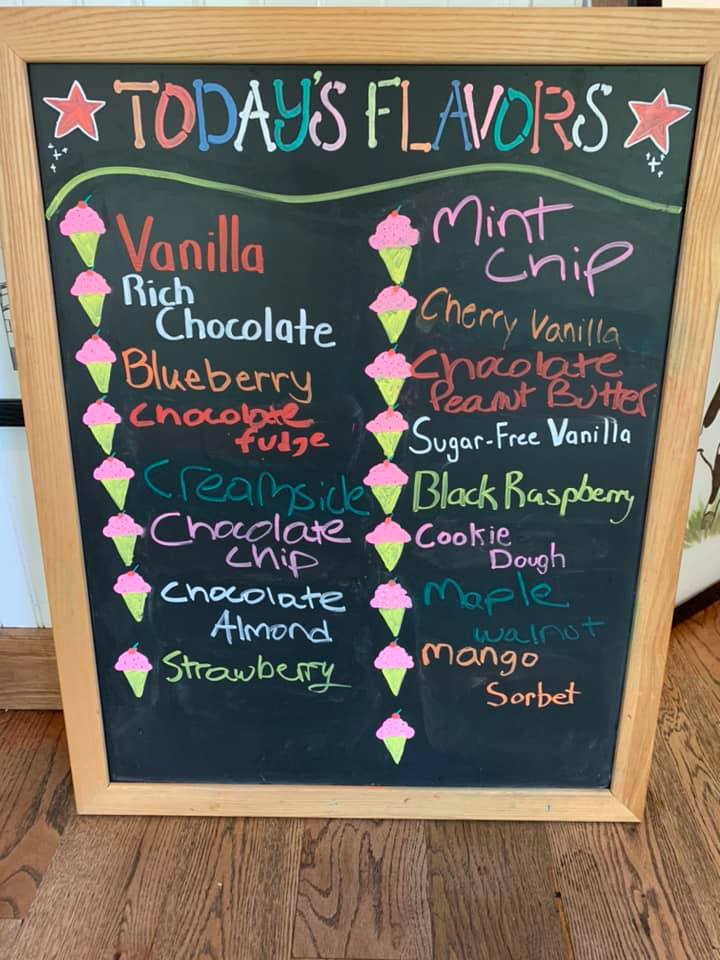 TODAY'S FLAVORS
Vanilla
Rich
Chocolate
Blueberry
Chocolate
fudge
Creamsicle
Chocolate
chip
Chocolate
Almond
Strawberry
Mint
Chip
Cherry Vanilla
Chocolate
Peanut Butter
Sugar-Free Vanilla
Black Raspberry
Cookie
Dough
Maple
walnut
Mango
Sorbet